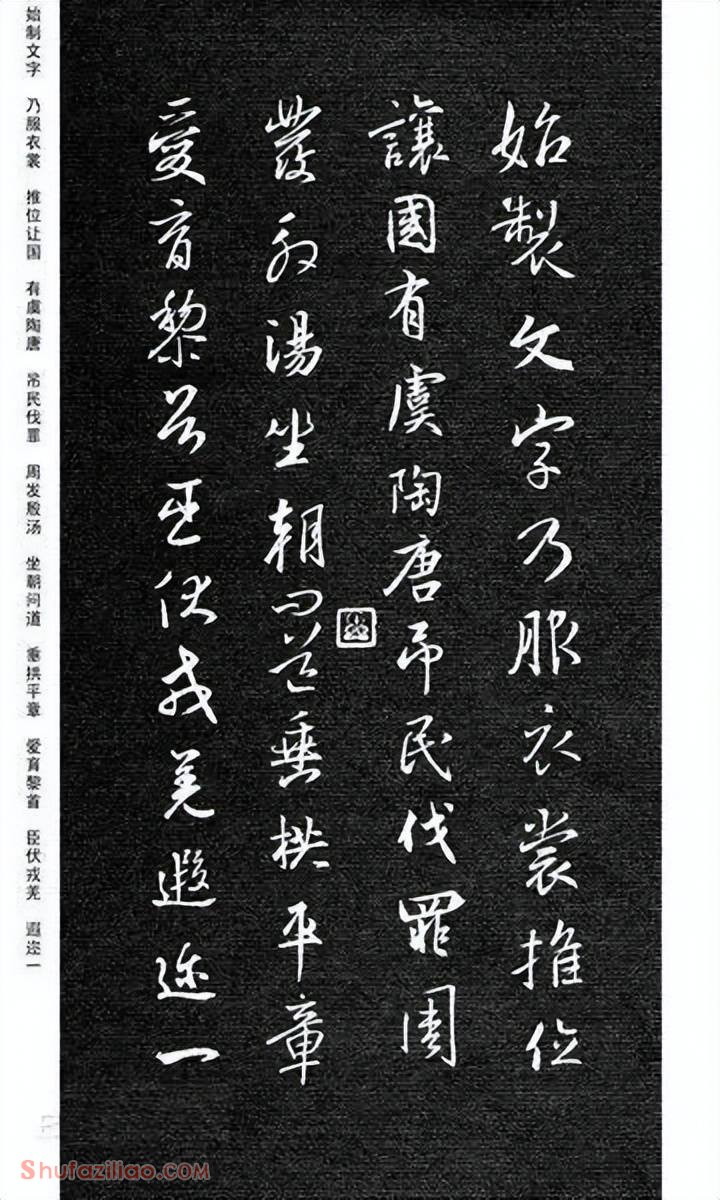 始製文字乃服衣裳推位
讓國有虞陶唐吊民伐罪周
發殷湯坐朝問道垂拱平章
愛育黎首臣伏戎羌遐迩一
始制文字 乃服衣裳 推位让国 有虞陶唐 吊民伐罪 周发殷汤 坐朝问道 垂拱平章 爱育黎首 臣伏戎羌 遐迩一
Shufaziliao.COM